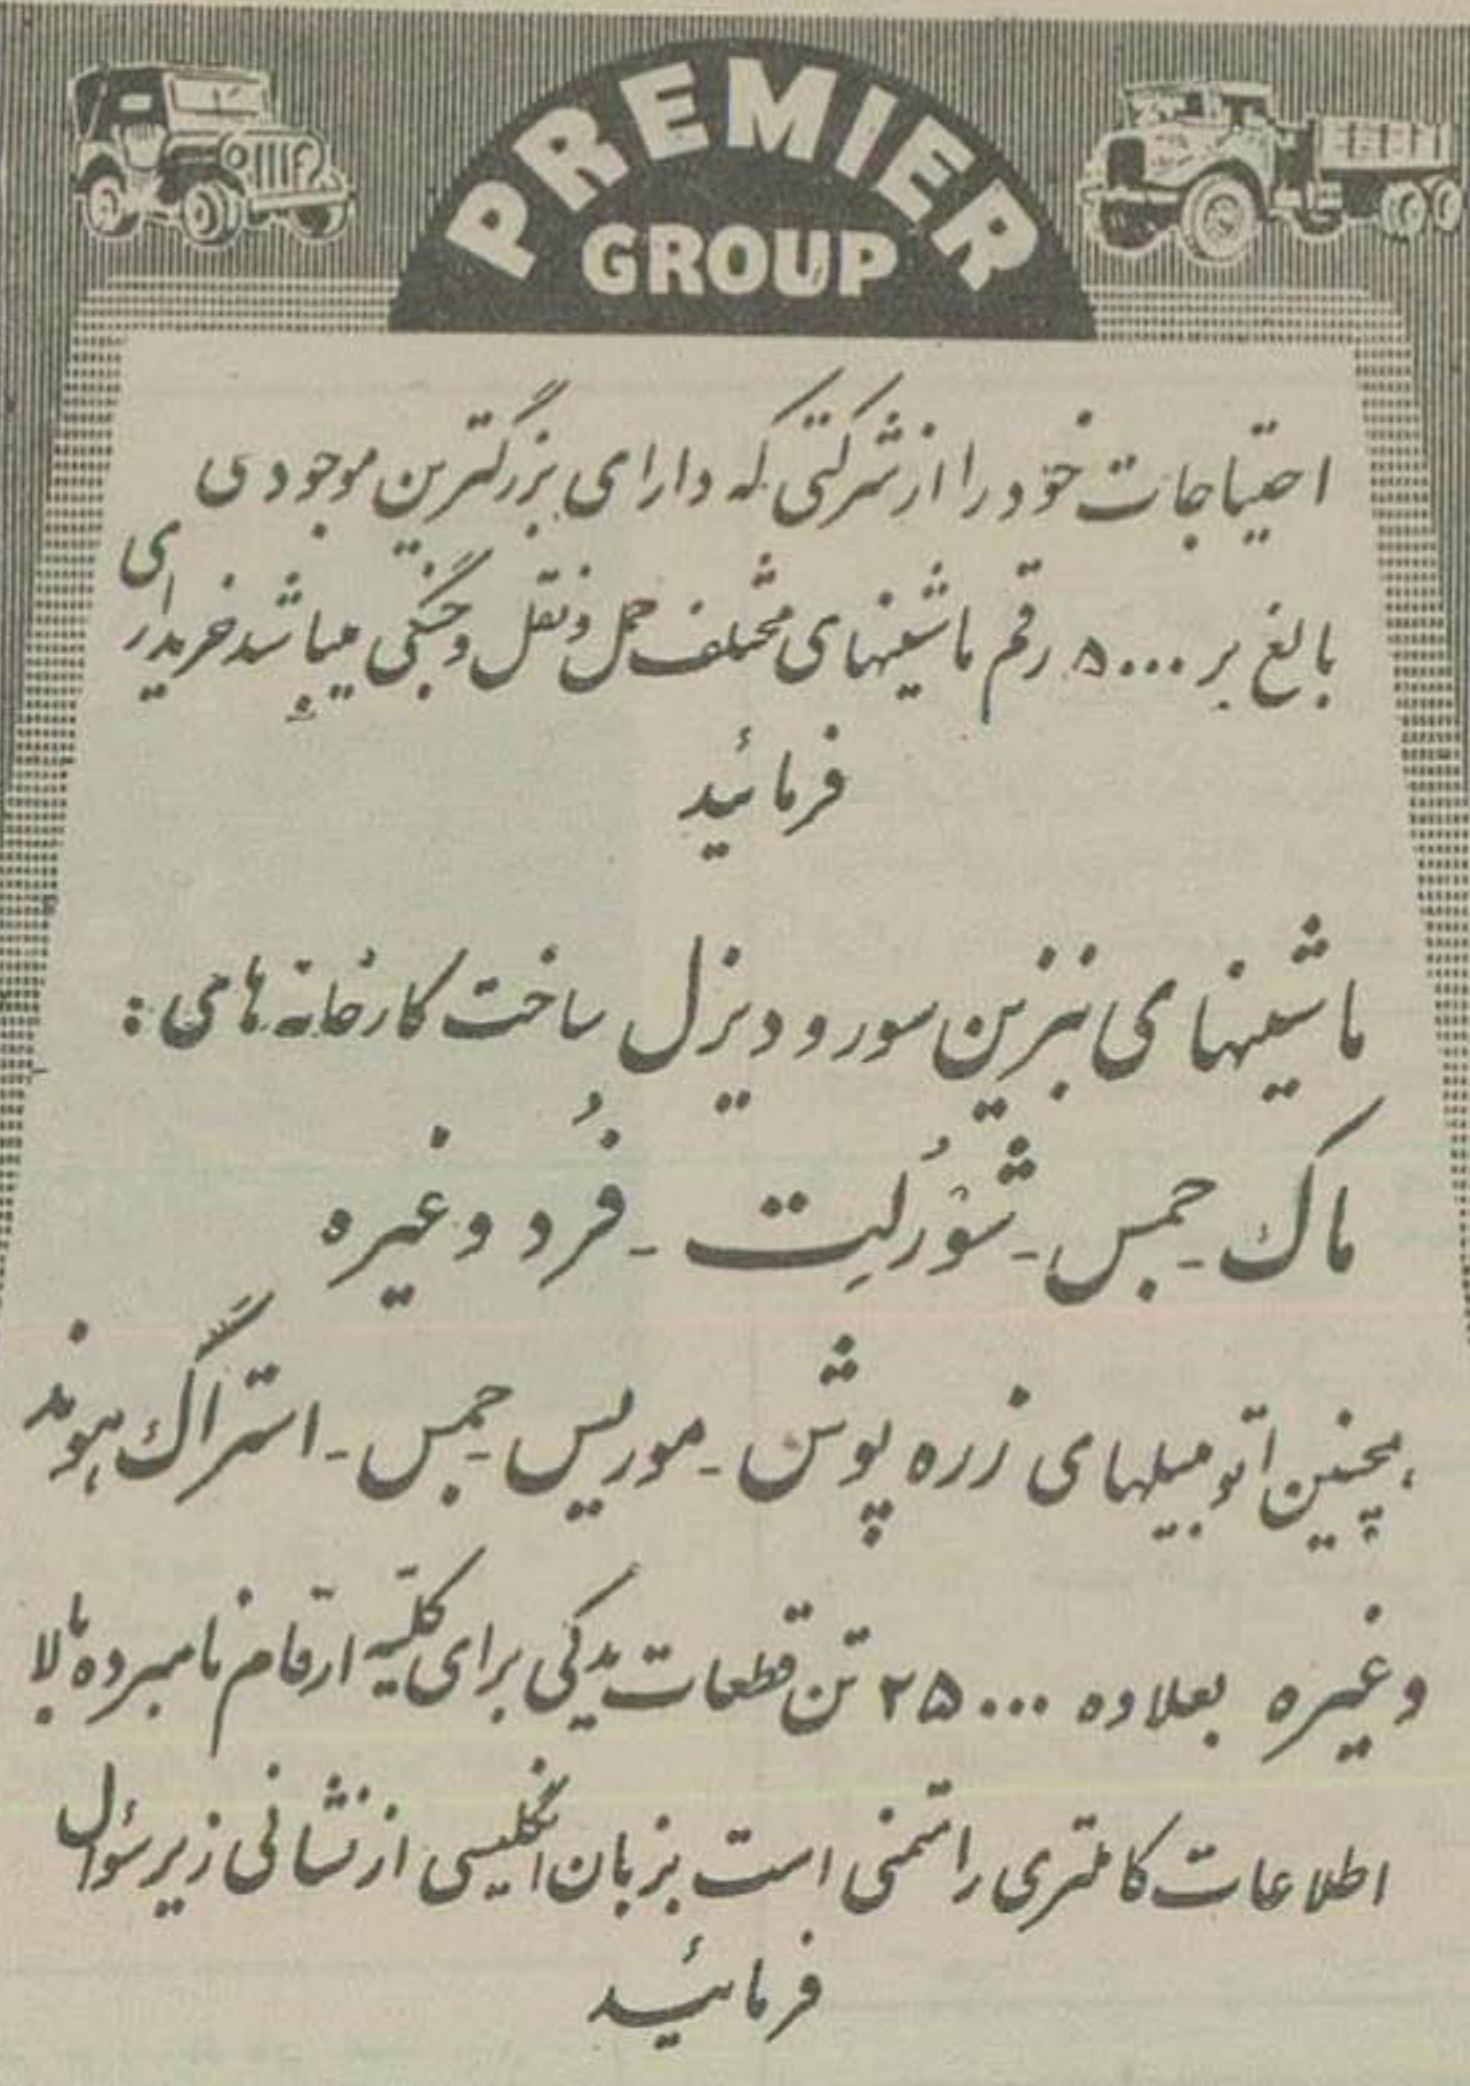 PREMIER
GROUP
احتیاجات خود را از شرکتی که دارای بزرگترین موجودی
بالغ بر ۵۰۰۰ رقم ماشینهای مختلف حمل و نقل و جنگی میباشد خریداری
فرمائید
ماشینهای بنزین سور و دیزل ساخت کارخانه های :
ماک - جمس - شورُلِت - فُرد و غیره
همچنین اتومبیلهای زره پوش - موریس جمس - استراگ هوند
و غیره بعلاوه ۲۵۰۰۰ تن قطعات یدکی برای کلّیه ارقام نامبرده بالا
اطلاعات کاملتری را متمنی است بزبان انگلیسی از نشانی زیر سئوال
فرمائید